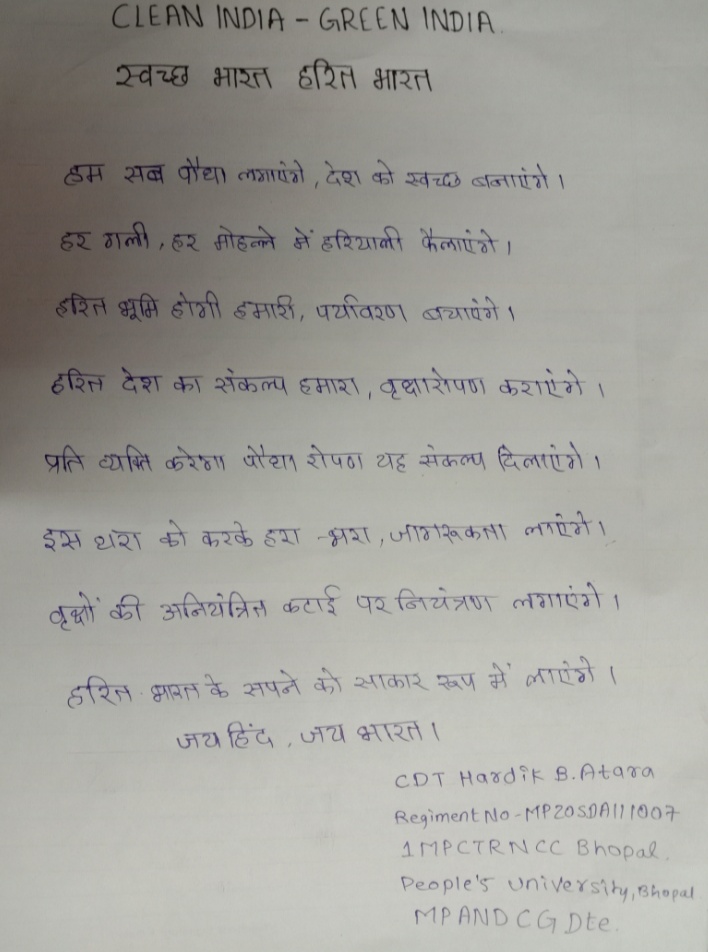 CLEAN INDIA - GREEN INDIA.
स्वच्छ भारत हरित भारत
हम सब पौधा लगाएंगे, देश को स्वच्छ बनाएंगे।
हर गली, हर मोहल्ले में हरियाली फैलाएंगे।
हरित भूमि होगी हमारी, पर्यावरण बचाएंगे।
हरित देश का संकल्प हमारा, वृक्षारोपण कराएंगे।
प्रति व्यक्ति करेगा पौधा रोपण यह संकल्प दिलाएंगे।
इस धरा को करके हरा-भरा, जागरूकता लाएंगे।
वृक्षों की अनियंत्रित कटाई पर नियंत्रण लगाएंगे।
हरित भारत के सपने को साकार रूप में लाएंगे।
जय हिंद, जय भारत।
CDT Hardik B. Atara
Regiment No - MP20SDA111007
1MPCTRNCC Bhopal.
People's University, Bhopal
MP AND CG Dte.